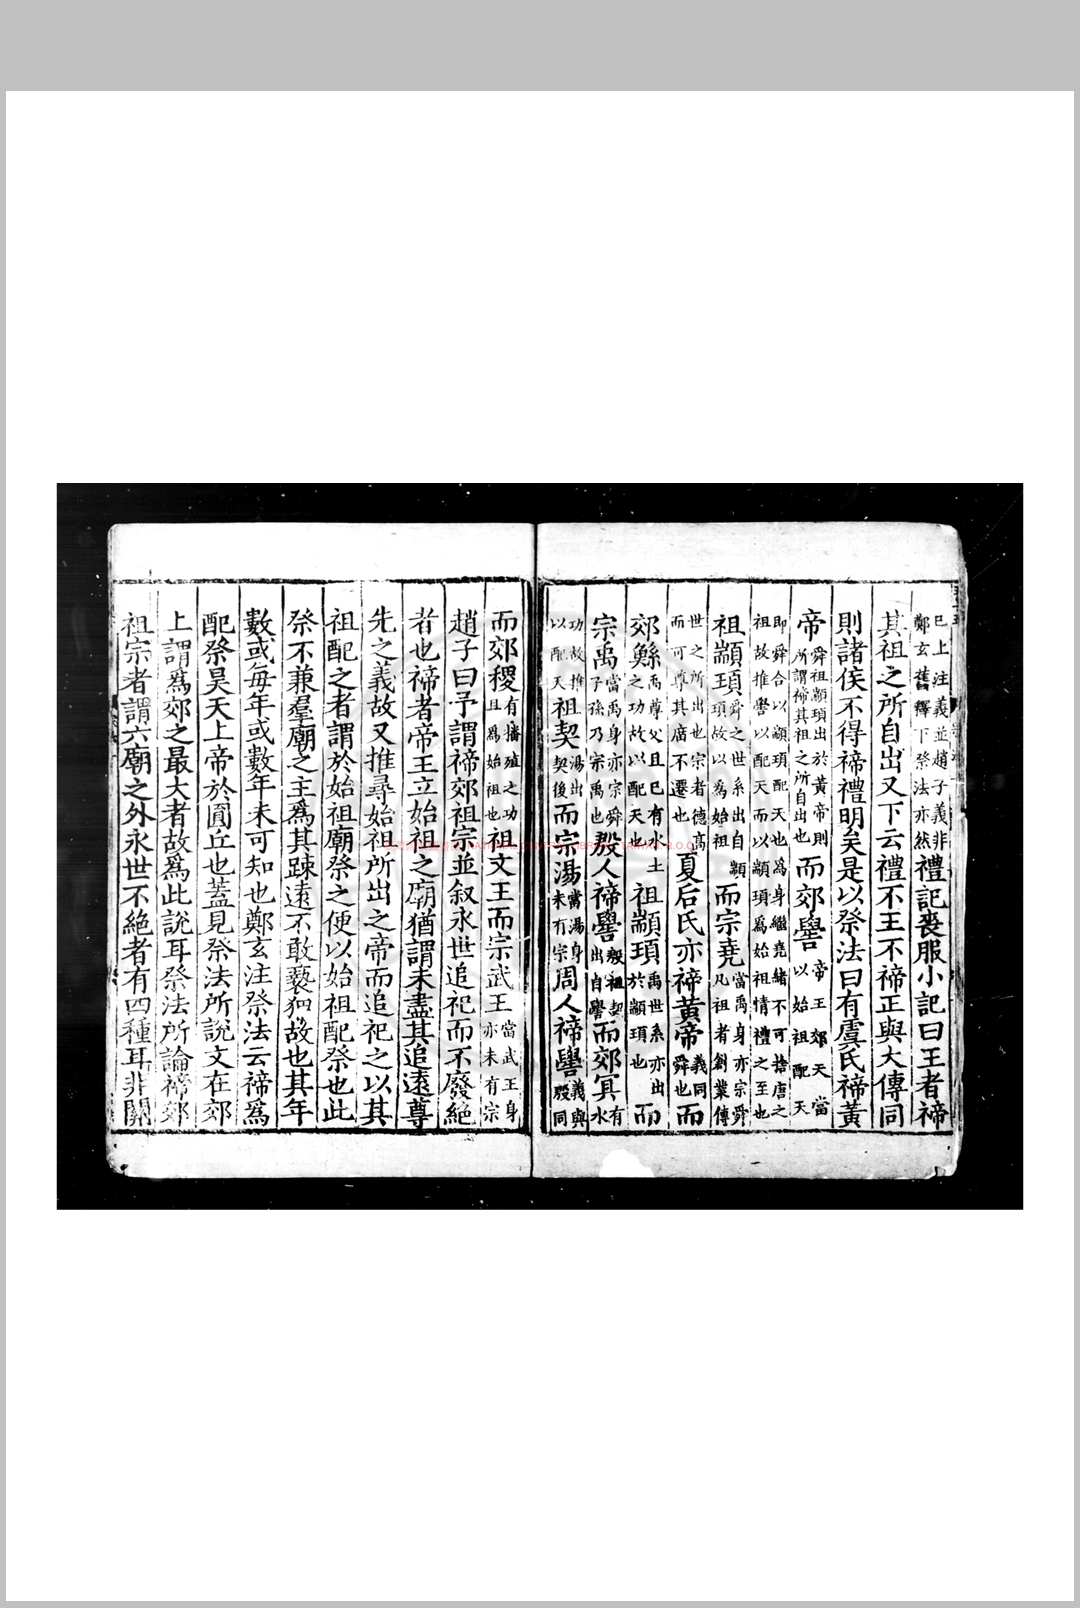 巳上注義並趙子義非鄭玄舊釋下祭法亦然禮記喪服小記曰王者禘
其祖之所自出又下云禮不王不禘正與大傳同
則諸侯不得禘禮明矣是以祭法曰有虞氏禘黃
帝舜祖顓頊出於黃帝則所謂禘其祖之所自出也而郊嚳帝王郊天當以始祖配天
即舜合以顓頊配天也爲身繼堯緒不可捨唐之祖故推嚳以配天而以顓頊爲始祖情禮之至也
祖顓頊舜之世系出自顓頊故以爲始祖而宗堯當禹身亦宗舜凡祖者創業傳
世之所出也宗者德高而可尊其廟不遷也夏后氏亦禘黃帝義同舜也而
郊鯀禹尊父且巳有水土之功故以配天也祖顓頊禹世系亦出於顓頊也而
宗禹當禹身亦宗舜子孫乃宗禹也殷人禘嚳殷祖契出自嚳而郊冥有水
功故推以配天祖契湯出契後而宗湯當湯身未有宗周人禘嚳義與殷同
而郊稷有播殖之功且爲始祖也祖文王而宗武王當武王身亦未有宗
趙子曰予謂禘郊祖宗並叙永世追祀而不廢絕
者也禘者帝王立始祖之廟猶謂未盡其追遠尊
先之義故又推尋始祖所出之帝而追祀之以其
祖配之者謂於始祖廟祭之便以始祖配祭也此
祭不兼羣廟之主爲其踈遠不敢褻狎故也其年
數或每年或數年未可知也鄭玄注祭法云禘爲
配祭昊天上帝於圓丘也蓋見祭法所說文在郊
上謂爲郊之最大者故爲此說耳祭法所論禘郊
祖宗者謂六廟之外永世不絕者有四種耳非關